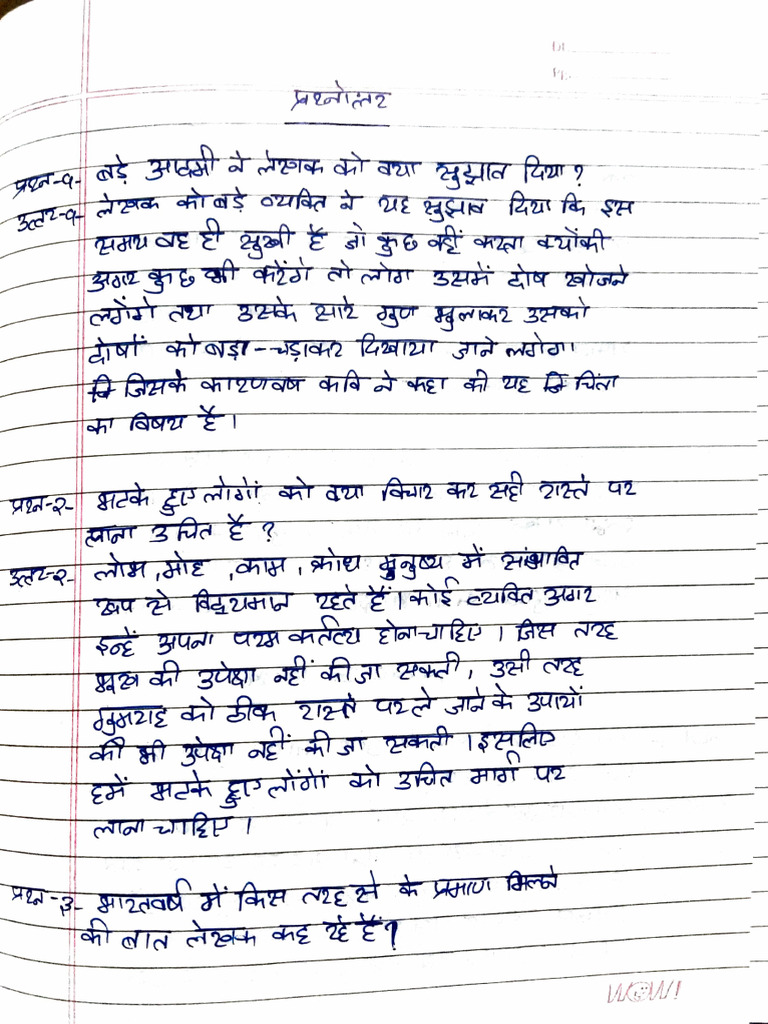 Dt.
Pg.
प्रश्नोत्तर
प्रश्न-१- बड़े आदमी ने लेखक को क्या सुझाव दिया ?
उत्तर-१- लेखक को बड़े व्यक्ति ने यह सुझाव दिया कि इस
समय वह ही सुखी है जो कुछ नहीं करता क्योंकी
अगर कुछ भी करेंगे तो लोग उसमें दोष खोजने
लगेंगे तथा उसके सारे गुण भुलाकर उसको
दोषों को बड़ा-चड़ाकर दिखाया जाने लगेगा।
जिसके कारणवष कवि ने कहा की यह चिंता
का विषय है।
प्रश्न-२- भटके हुए लोगों को क्या विचार कर सही रास्ते पर
लाना उचित है ?
उत्तर-२- लोभ, मोह, काम, क्रोध मुनुष्य में संभावित
रूप से विद्वयमान रहते हैं। कोई व्यक्ति अगर
इन्हें अपना परम कर्तव्य होना चाहिए। जिस तरह
भूख की उपेक्षा नहीं की जा सकती, उसी तरह
गुमराह को ठीक रास्ते पर ले जाने के उपायों
की भी उपेक्षा नहीं की जा सकती। इसलिए
हमें भटके हुए लोंगों को उचित मार्ग पर
लाना चाहिए।
प्रश्न-३- भारतवर्ष में किस तरह से के प्रमाण मिलने
की बात लेखक कह रहे हैं?
WOW!